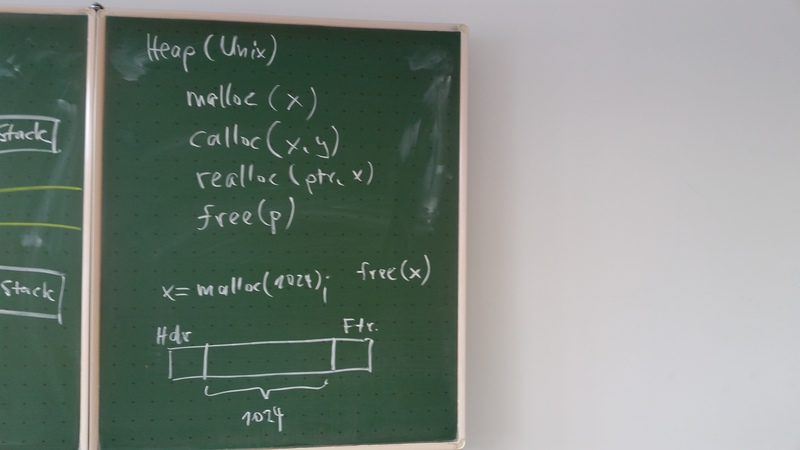 Stack
Stack
Heap (Unix)
malloc (x)
calloc (x, y)
realloc (ptr, x)
free(p)
x = malloc(1024); free(x)
Hdr Ftr.
1024